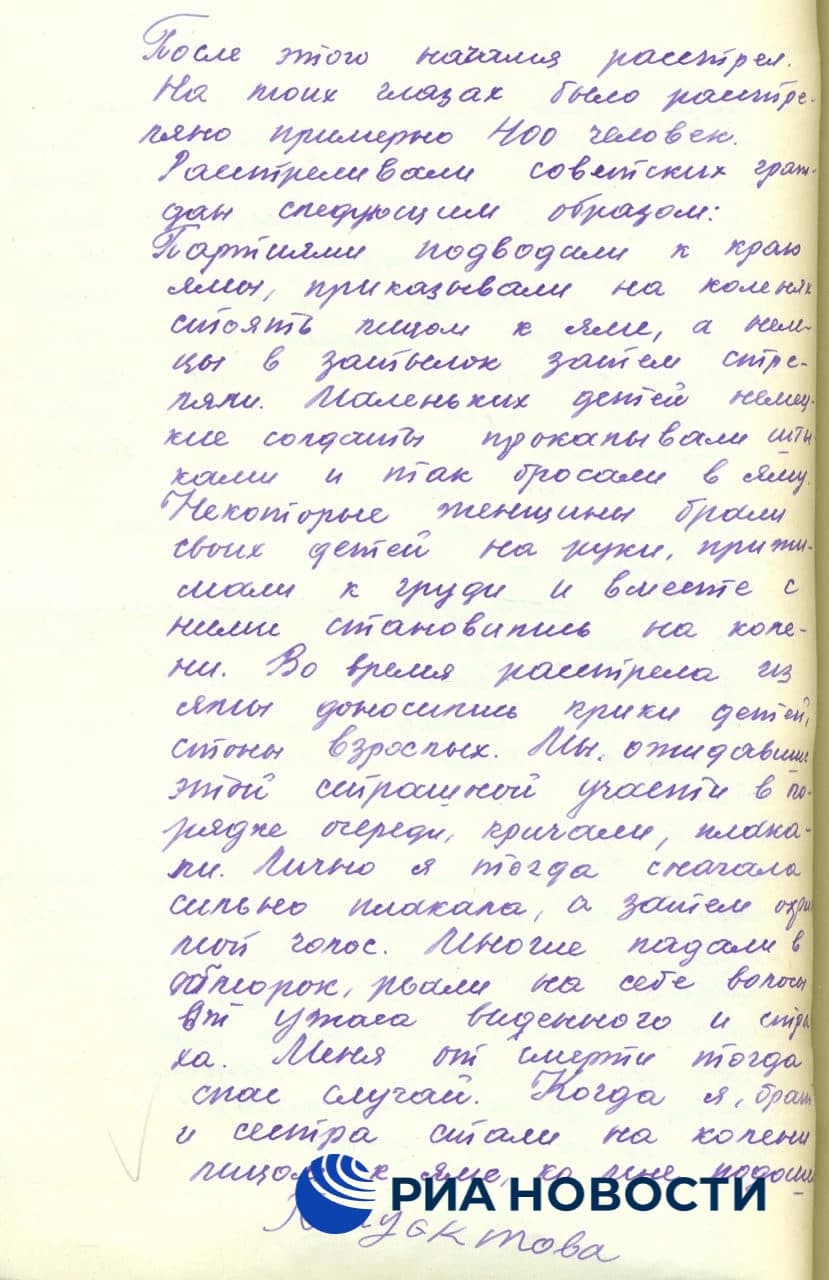 После этого начался расстрел.
На моих глазах было расстре-
ляно примерно 400 человек.
Расстреливали советских граж-
дан следующим образом:
Партиями подводили к краю
ямы, приказывали на коленях
стоять лицом к яме, а нем-
цы в затылок затем стре-
ляли. Маленьких детей немец-
кие солдаты прокалывали шты
ками и так бросали в яму.
Некоторые женщины брали
своих детей на руки, прижи-
мали к груди и вместе с
ними становились на коле-
ни. Во время расстрела из
ямы доносились крики детей,
стоны взрослых. Мы, ожидавшие
этой страшной участи в по-
рядке очереди, кричали, плака-
ли. Лично я тогда сначала
сильно плакала, а затем
мой голос. Многие падали в
обморок, рвали на себе волосы
от ужаса виденного и стра
ха. Меня от смерти тогда
спас случай. Когда я, брат
и сестра стали на колени
лицом к яме, ко мне
РИА НОВОСТИ